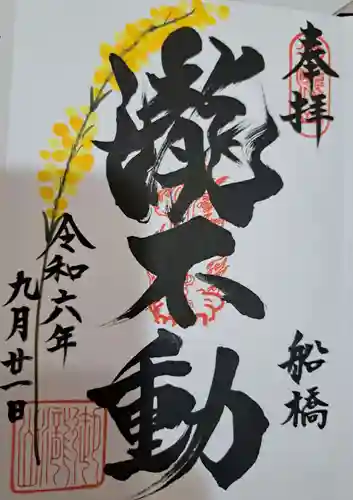 奉拝
船橋
瀧不動
令和六年
九月廿一日